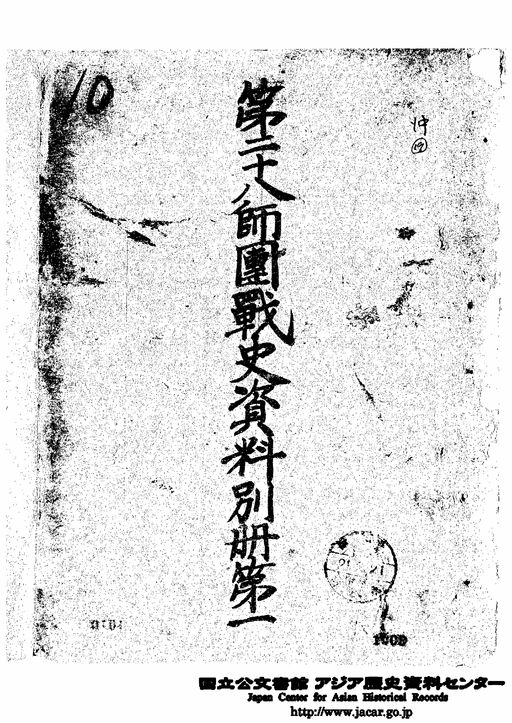 10
沖
第二十八師團戰史資料別冊第一
国立公文書館 アジア歴史資料センター
Japan Center for Asian Historical Records
http://www.jacar.go.jp